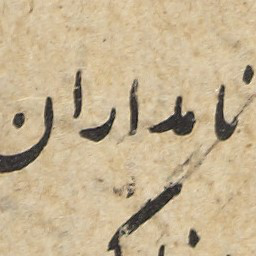 نامداران